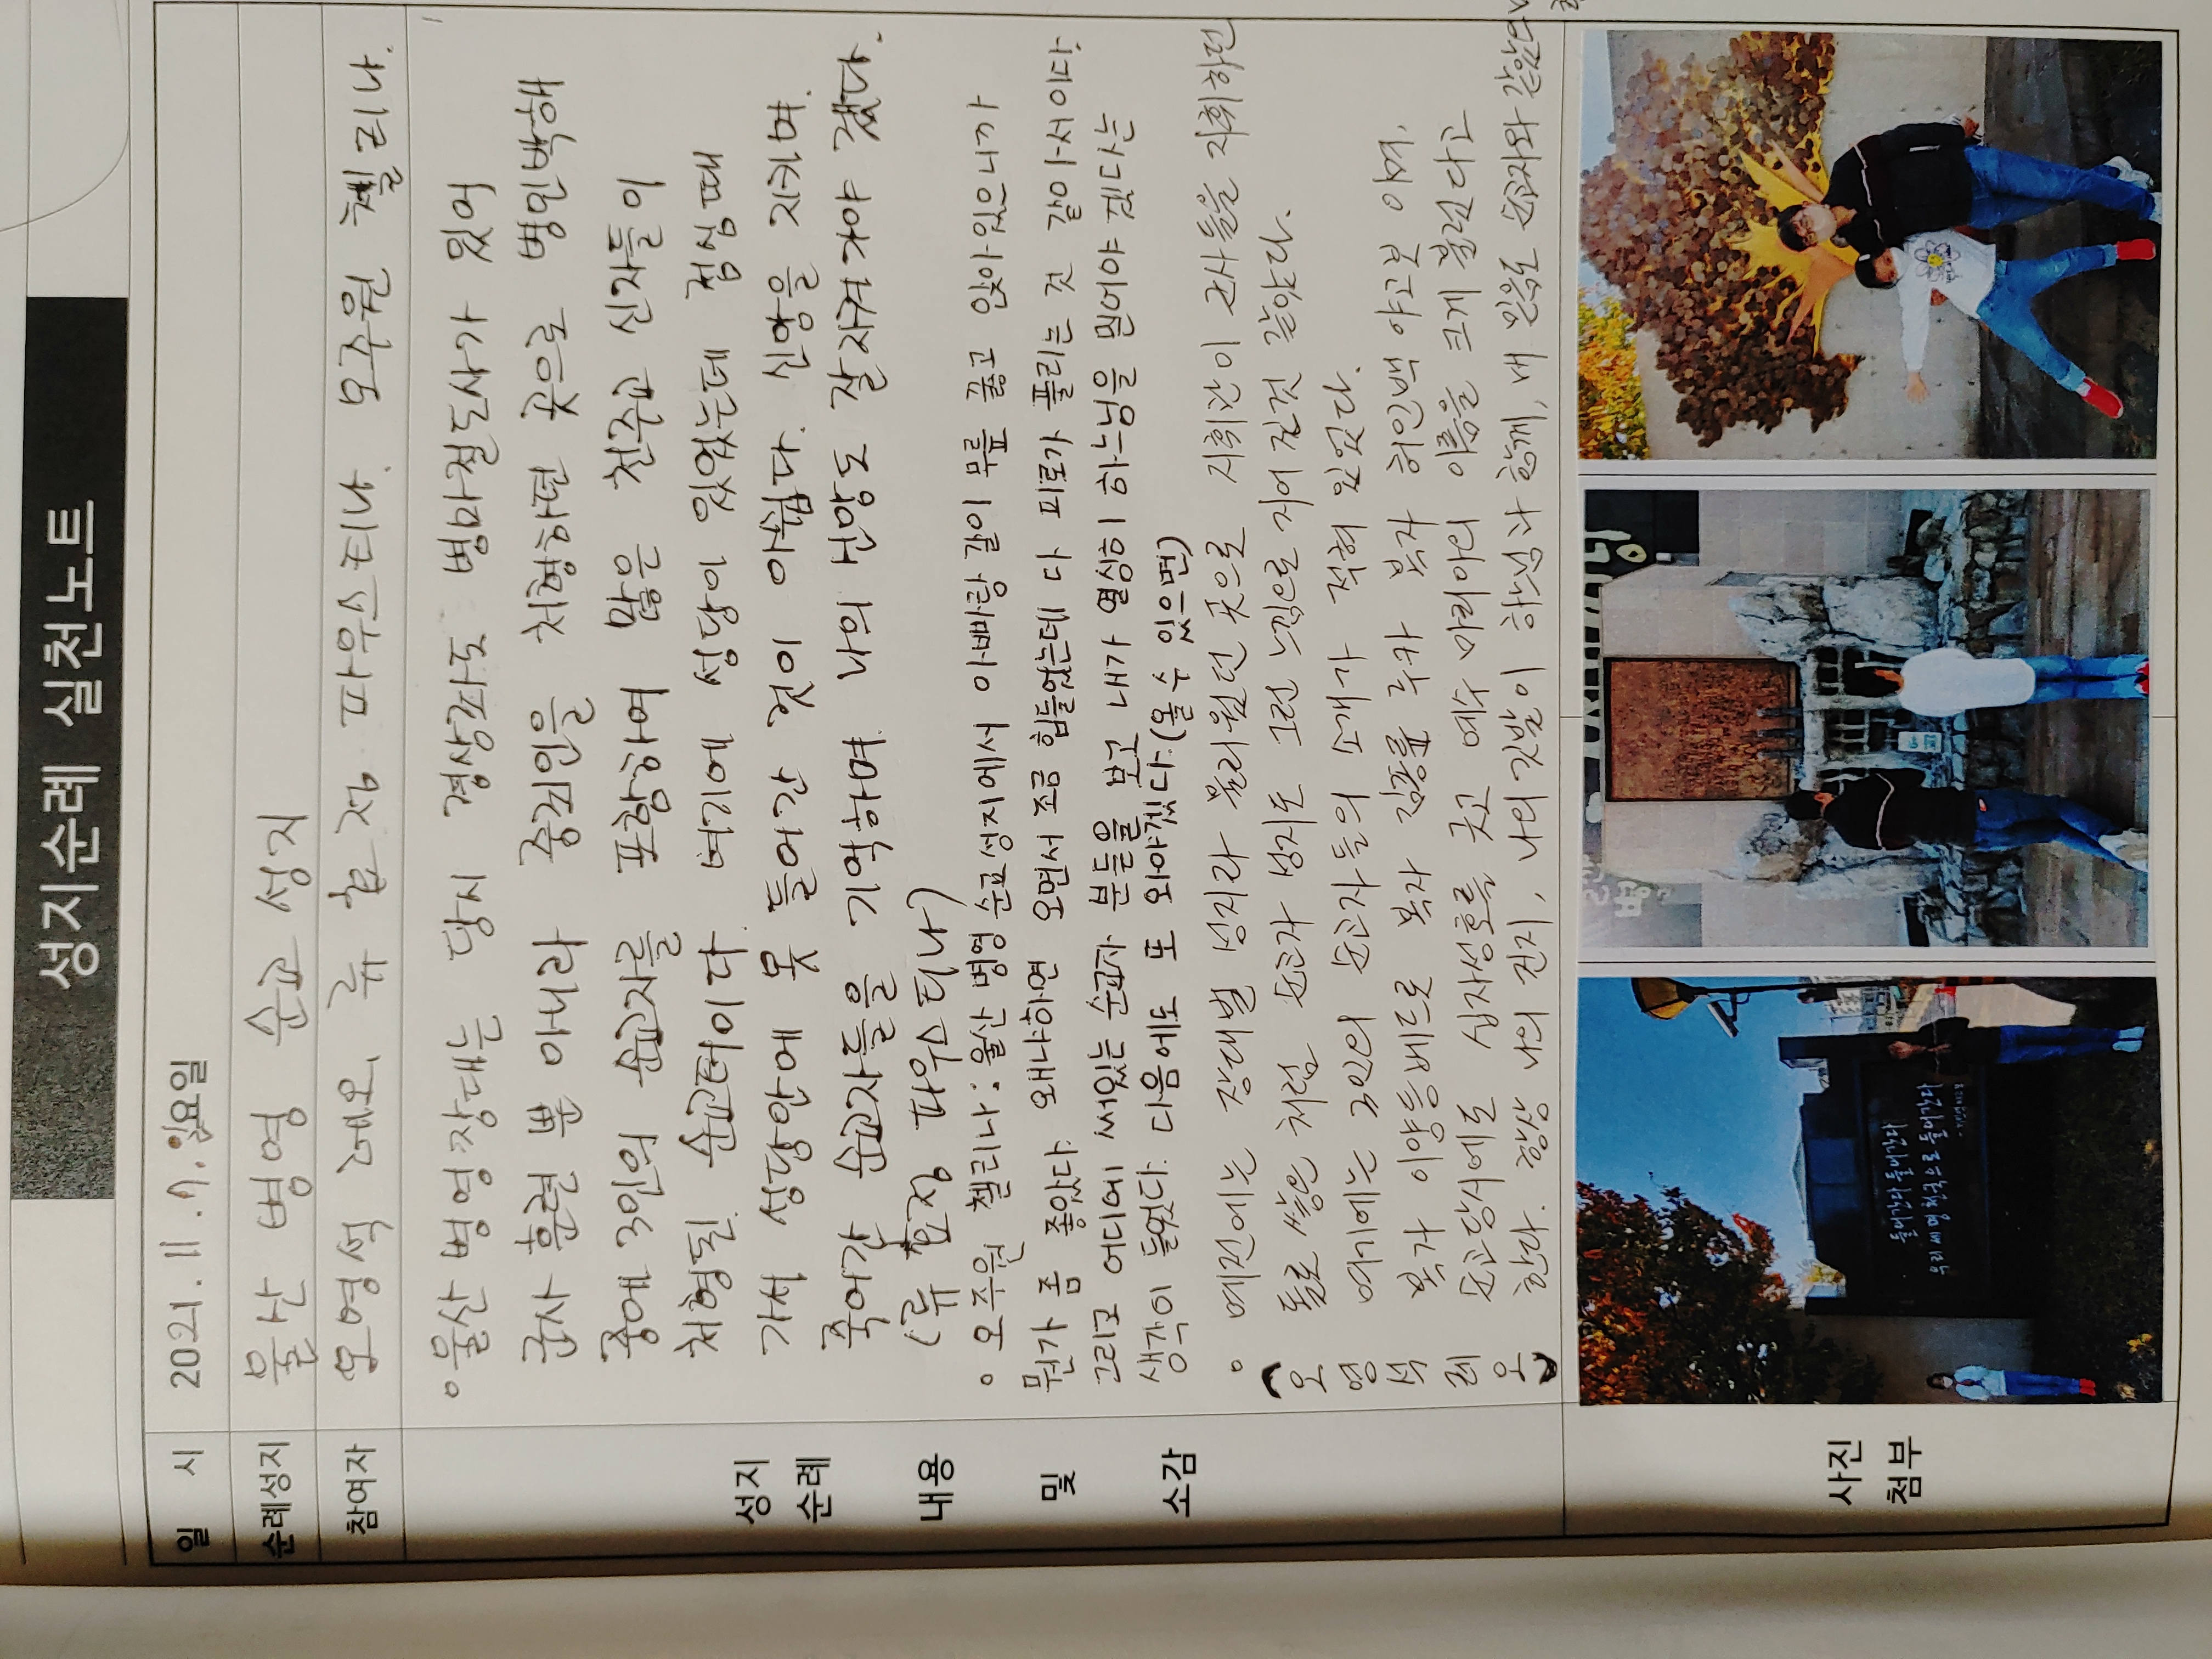 성지순례 실천노트
일 시 2021. 11. 7. 일요일
순례성지 울산 병영 순교 성지
참여자 오영석 레오, 류효정 파우스티나, 오주원 첼리나.
성지
순례
내용
및
소감
◦울산 병영장대는 당시 경상좌도 병마절도사가 있어
군사 훈련 뿐 아니라 중죄인을 처형하던 곳으로 병인박해
중에 3인의 순교자를 포함하여 많은 천주교 신자들이
처형된 순교터이다. 여기에 성당이 있었는데 점심때
가서 성당안에 못 들어간 것이 아쉽다. 신앙을 지키며
죽어간 순교자들을 기억하며 나의 신앙도 잘 지켜가야 겠다.
(류효정 파우스티나)
◦ 오주원 첼리나 : 울산 병영 순교성지에서 아빠랑 같이 무릎 꿇고 앉아있으니까
뭔가 좀 좋았다. 왜냐하면 오면서 조금 힘들었는데 다 피로가 풀리는 것 같아서이다.
그리고 어디에 써있는 순교자 분들을 보고 내가 열심히 하느님을 믿어야 겠다는
생각이 들었다. 다음에도 또 와야겠다.(올 수 있으면)
◦ 예전에는 장대벌 성지라 불리웠던 곳으로 지휘관이 군사들을 지휘하던
(오영석레오) 돌로 쌓은 처럼 순교자 성지도 그런 느낌으로 지어 진것 같았다.
여기에는 3인의 순교자들의 소개가 적혀 있었다.
복자 이양등베드로 복자 김종륜 루카 복자 허인백 야고보 이며,
순교당시에도 십자성호를 긋고 예수 마리아의 이름을 크게 불렀다고
한다. 항상 나의 진지, 나의 깃발이 하느님과 함께, 내 믿음도 순교자와 같았으면
사진
첨부
들어간다 들어간다
우리 세 명 천국으로 들어간다